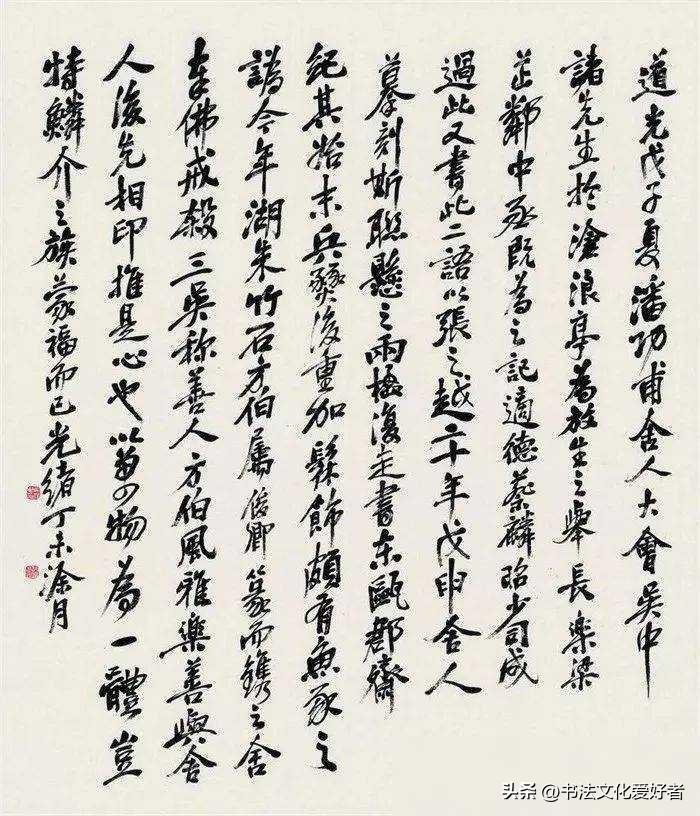 道光戊子夏潘功甫舍人大會吳中
諸先生於滄浪亭為放生之舉長樂梁
芷鄰中丞既為之記適德蔡麟昭少司成
過此又書此二語以張之越二十年戊申舍人
摹刻斯聯懸之兩楹復走書東甌郡齋
紀其始末兵燹後重加髹飾頗有魚豕之
譌今年湖朱竹石方伯屬俊卿篆而鐫之舍
奉佛戒殺三吳称善人方伯風雅樂善與舍
人後先相印推是心也以萬物為一體豈
特鱗介之族蒙福而已光緒丁未涂月
头条 @书法文化爱好者